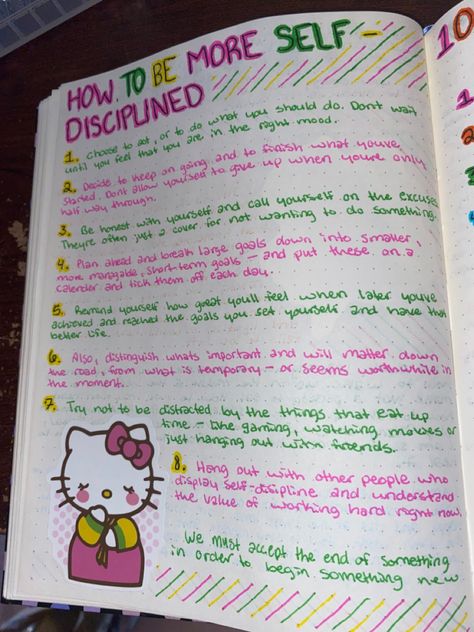 HOW TO BE MORE SELF -
DISCIPLINED
1. Choose to act, or to do what you should do. Dont wait
until you feel that you are in the right mood.
2. Decide to keep on going, and to finish what youve
started. Dont allow yourself to give up when youre only
half way through.
3. Be honest with yourself and call yourself on the excuses.
Theyre often just a cover for not wanting to do something.
4. Plan ahead and break large goals down into smaller,
more managable, short-term goals - and put these on a
calender and tick them off each day.
5. Remind yourself how great youll feel when later youve
achieved and reached the goals you set yourself and have that
better life.
6. Also, distinguish whats important and will matter down
the road, from what is temporary - or seems worthwhile in
the moment.
7. Try not to be distracted by the things that eat up
time - like gaming, watching movies or
just hanging out with friends.
8. Hang out with other people who
display self-disipline and understand
the value of working hard right now.
We must accept the end of something
in order to begin something new
10
1.
2
3